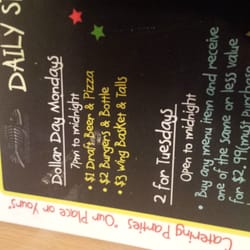 DAILY S
Dollar Day Mondays
7pm to midnight
• $1 Draft Beer & Pizza
• $2 Burgers & Bottle
• $3 Wing Basket & Talls
2 for Tuesdays
Open to midnight
• Buy any menu item and receive
one of the same or less value
for $2.99 (mit Purchase
Catering Parties "Our Place or Yours"